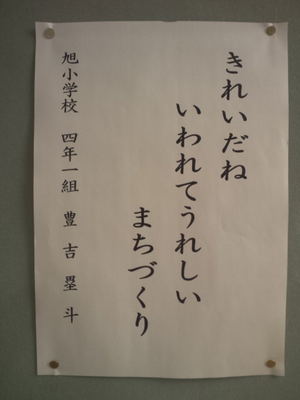 きれいだね
いわれてうれしい
まちづくり
旭小学校 四年一組 豊吉塁斗